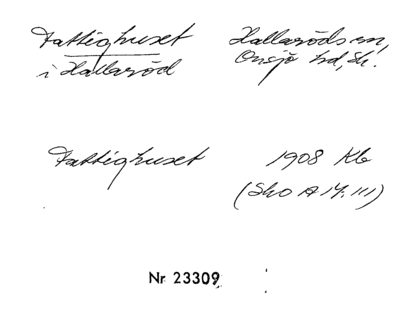 Fattighuset
i Hallaröd
Hallaröds sn,
Onsjö hd, Sk.
Fattighuset
1908 Kb
(Sko A 17:111)
Nr 23309